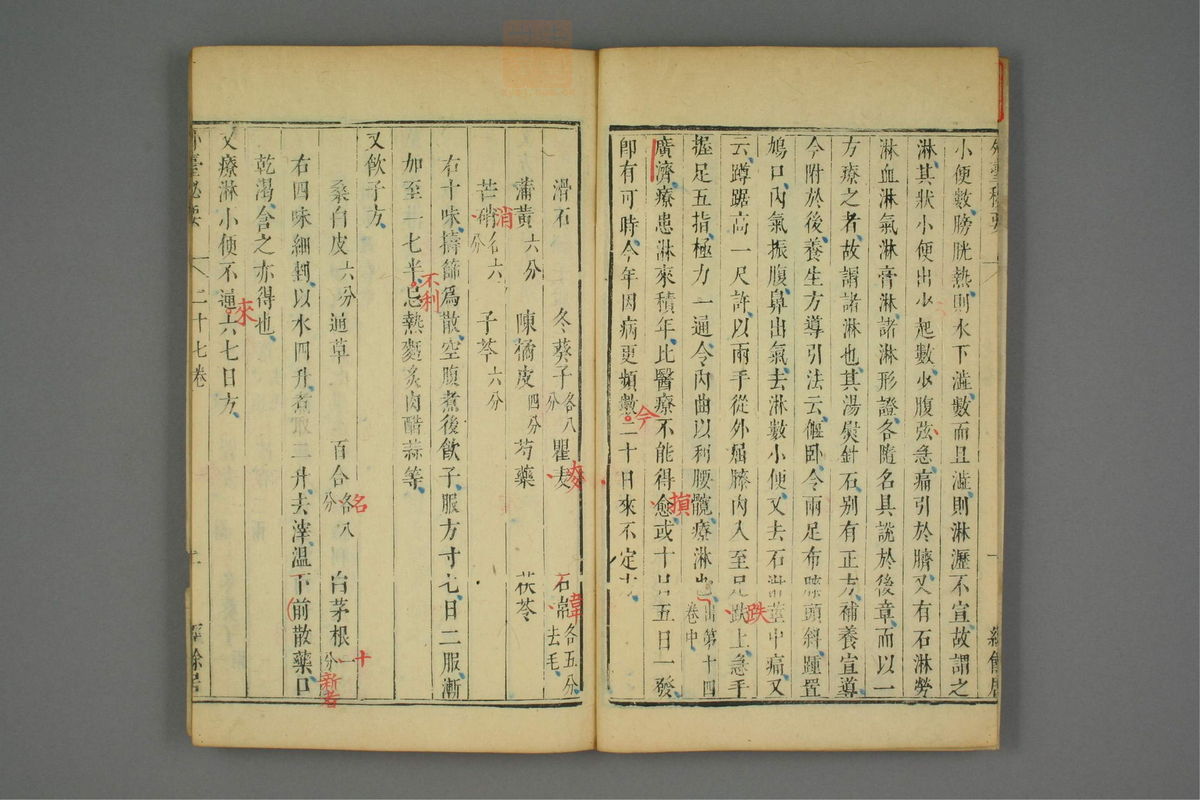 小便數膀胱熱則水下澁數而且澁則淋瀝不宣故謂之
淋其狀小便出少起數少腹弦急痛引於臍又有石淋勞
淋血淋氣淋膏淋諸淋形證各隨名具說於後章而以一
方療之者故謂諸淋也其湯熨針石別有正方補養宣導
今附於後養生方導引法云偃卧令兩足布膝頭斜踵置
鳩口內氣振腹鼻出氣去淋數小便又去石淋莖中痛又
云蹲踞高一尺許以兩手從外屈膝內入至足趺上急手
跌
握足五指極力一通令內曲以利腰髖療淋也出第十四
卷中
廣濟療患淋來積年比醫療不能得愈或十日五日一發
損
即有可時今年因病更頻數二十日來不定方
今
滑石 冬葵子各八分 瞿麦 石韋各五分去毛
麥
韋
蒲黃六分 陳橘皮四分 芍藥 茯苓
芒硝各六分 子芩六分
消
右十味擣篩爲散空腹煮後飲子服方寸匕日二服漸
加至一七半忌熱麵炙肉醋蒜等
不利
又飲子方
桑白皮六分 通草 百合各八分 白茅根一分
名
十
新者
右四味細剉以水四升煮取二升去滓温下前散藥口
乾渴含之亦得也
又療淋小便不通六七日方
來
外臺秘要 二十七卷 二 經餘居